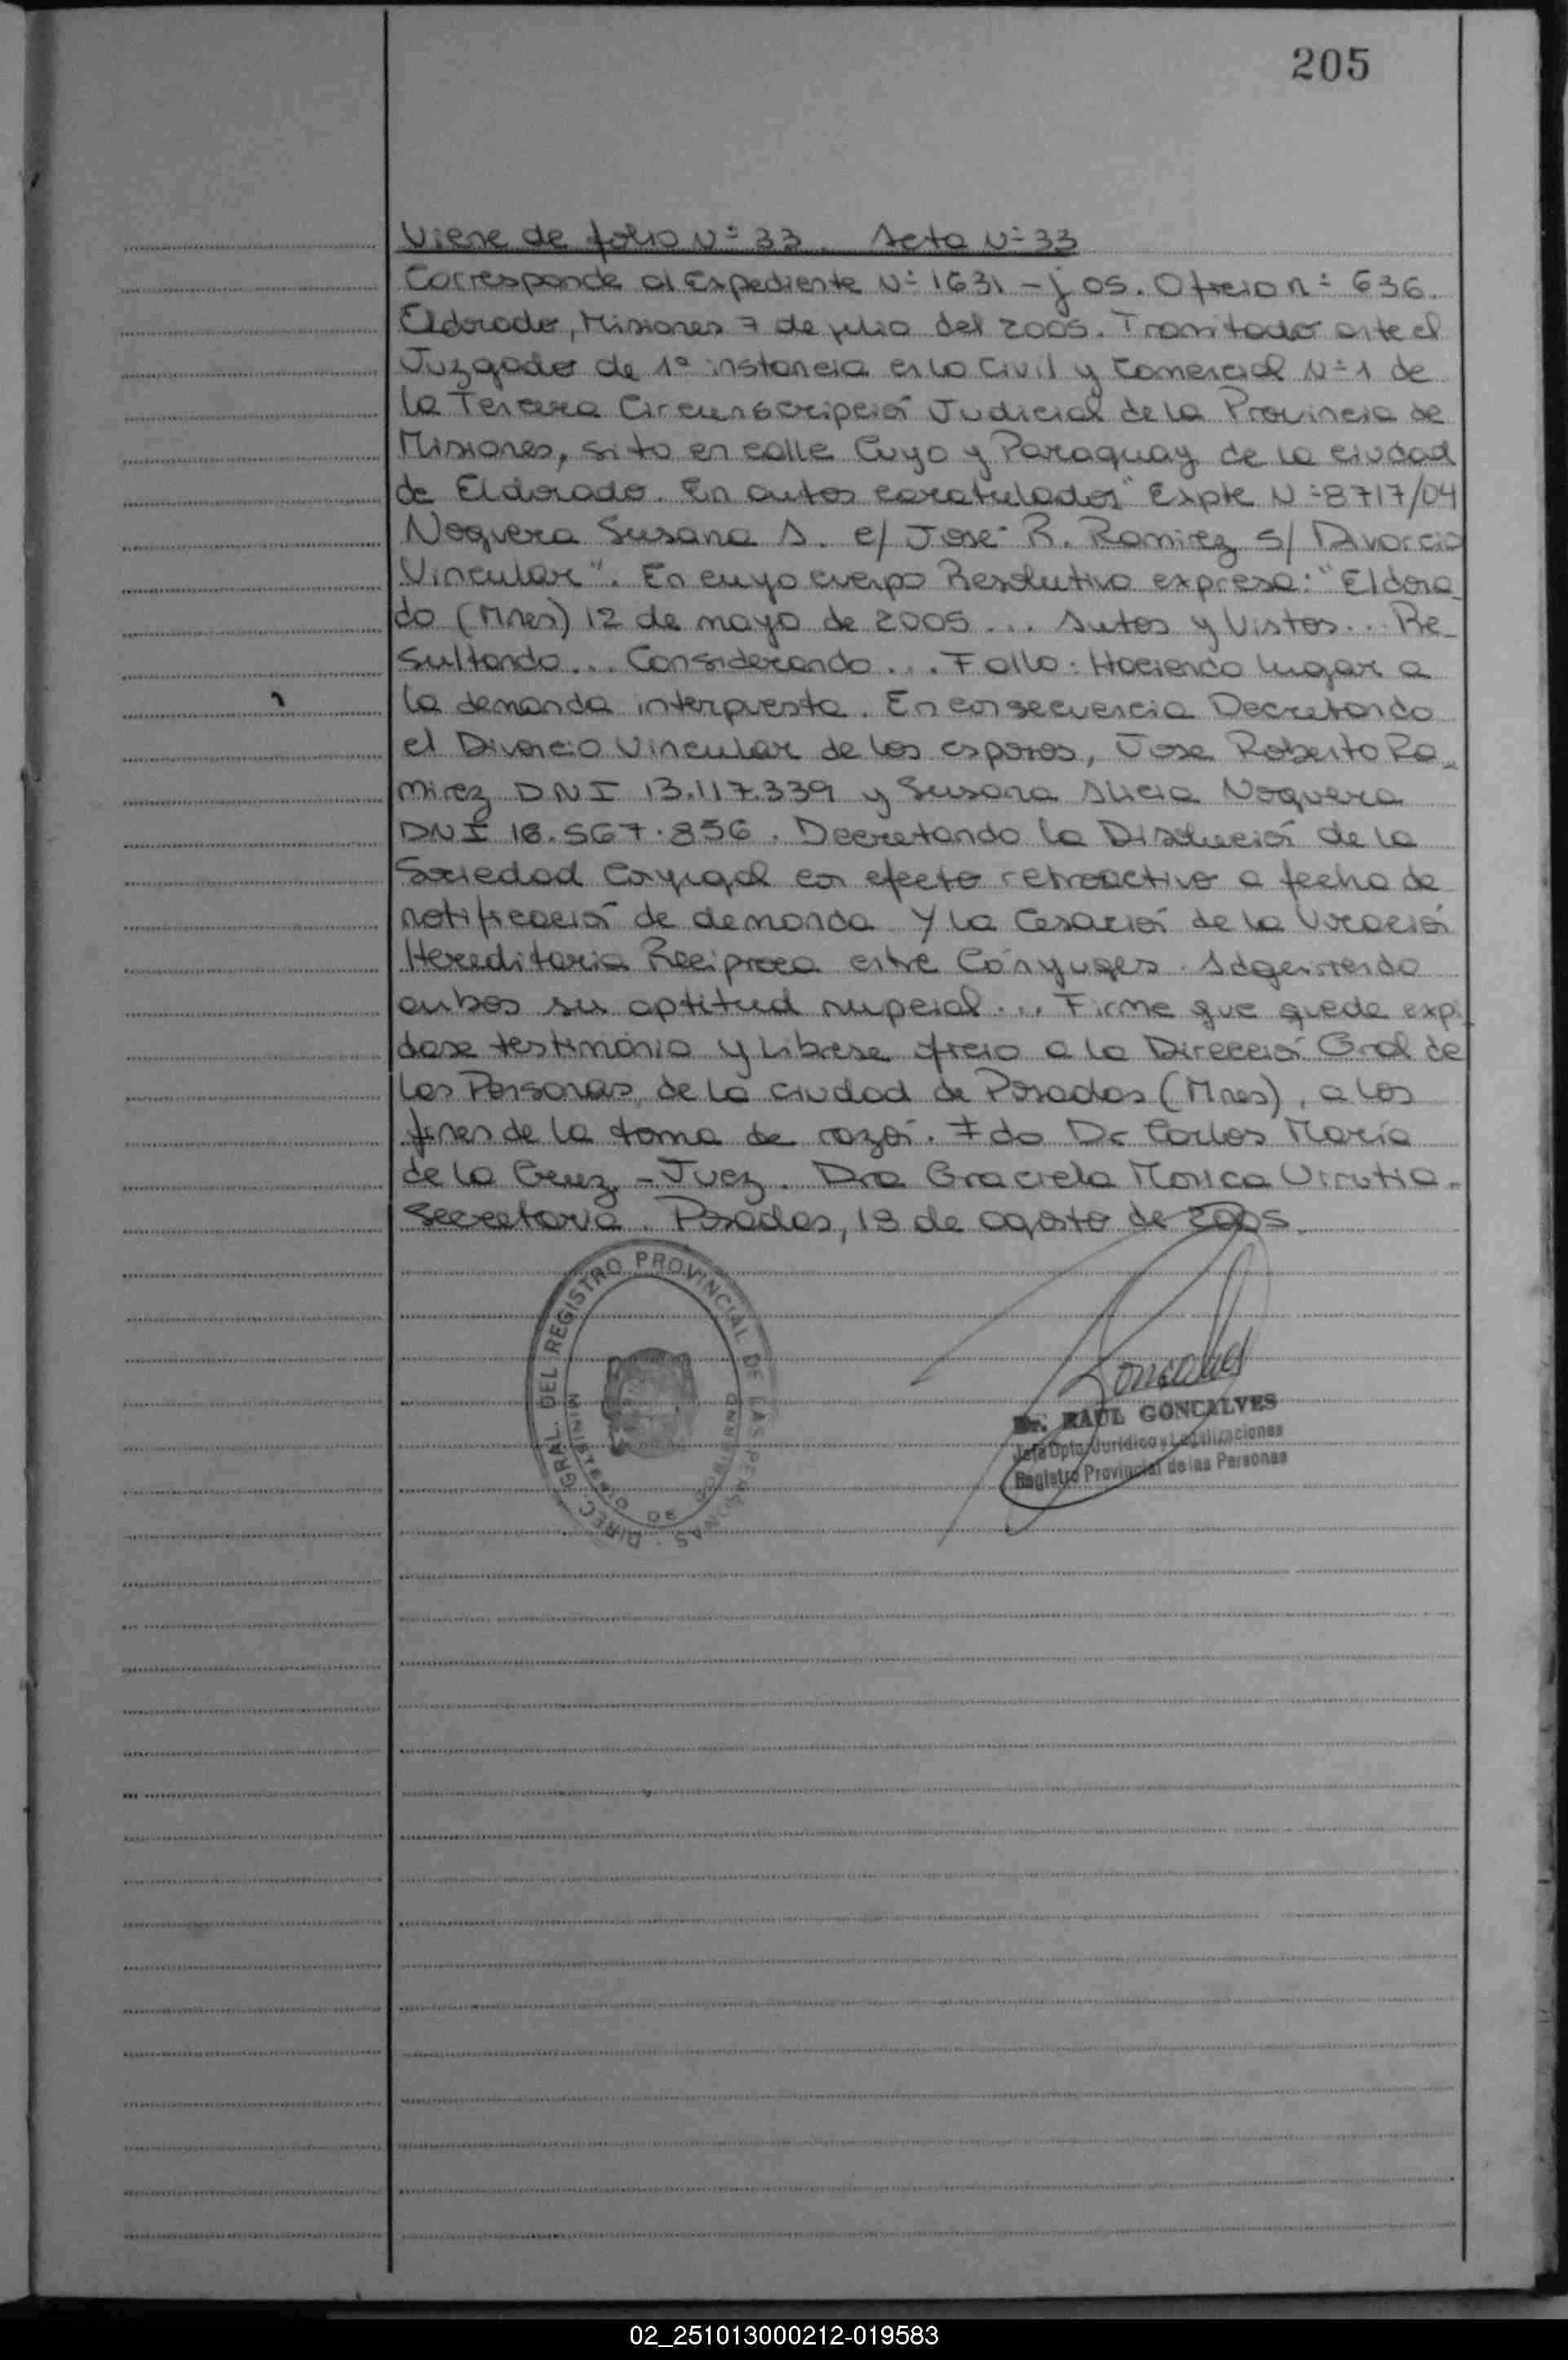 205
Viene de folio Nº 33. Acta Nº 33
Corresponde al Expediente Nº 1631 - J 05. Oficio nº 636.
Eldorado, Misiones 7 de julio del 2005. Tramitado ante el
Juzgado de 1º instancia en lo Civil y Comercial Nº 1 de
la Tercera Circunscripción Judicial de la Provincia de
Misiones, sito en calle Cuyo y Paraguay de la ciudad
de Eldorado. En autos caratulados "Expte Nº 8717/04
Noguera Susana A. c/ Jose R. Ramirez s/ Divorcio
Vincular". En cuyo cuerpo Resolutivo expresa: "Eldora_
do (Mnes) 12 de mayo de 2005 ... Autos y Vistos ... Re_
sultando ... Considerando ... Fallo: Haciendo lugar a
la demanda interpuesta. En consecuencia Decretando
el Divorcio Vincular de los esposos, Jose Roberto Ra_
mirez DNI 13.117.339 y Susana Alicia Noguera
DNI 18.567.856. Decretando la Disolución de la
Sociedad Conyugal con efecto retroactivo a fecha de
notificación de demanda y la Cesación de la Vocación
Hereditaria Reciproca entre Cónyuges. Adquiriendo
ambos su aptitud nupcial ... Firme que quede expi_
dase testimonio y Librese oficio a la Dirección Gral de
las Personas, de la ciudad de Posadas (Mnes), a los
fines de la toma de razón. Fdo Dr Carlos María
de la Cruz - Juez. Dra Graciela Monica Urrutia_
Secretaria. Posadas, 18 de agosto de 2005.
DIREC. GRAL. DEL REGISTRO PROVINCIAL DE LAS PERSONAS
MINISTERIO DE GOBIERNO
Goncalves
Dr. RAUL GONCALVES
Jefe Dpto. Jurídico y Legalizaciones
Registro Provincial de las Personas
02_251013000212-019583